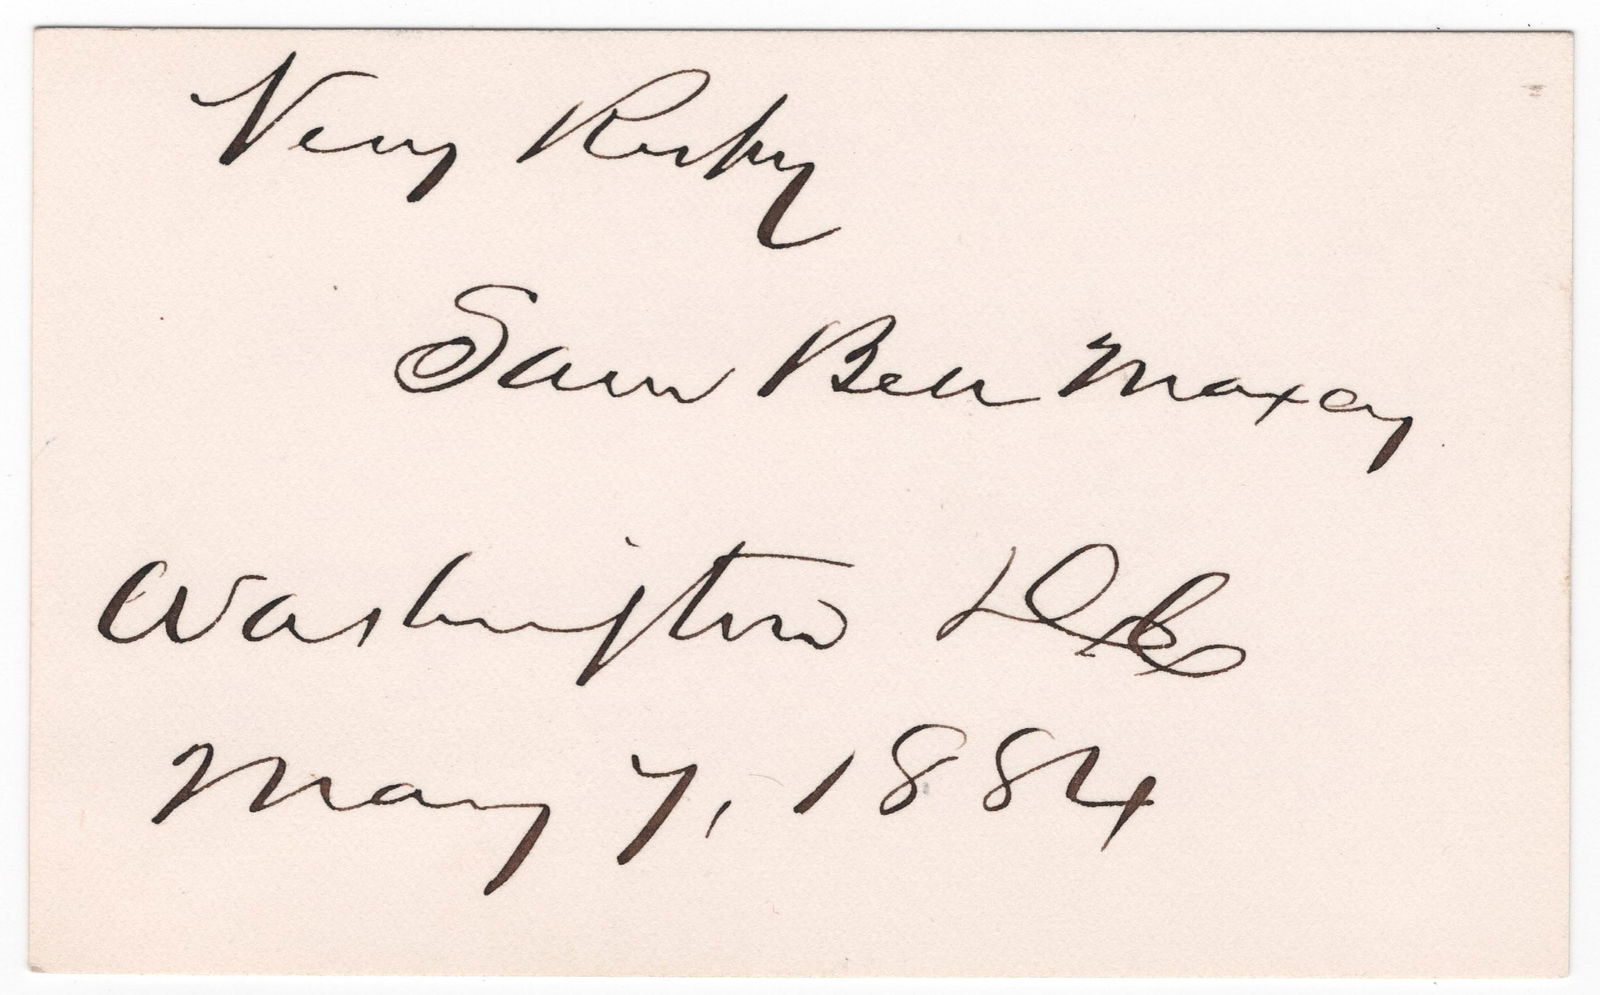 Very Respy
Sam Bell Maxey
Washington D.C.
May 7, 1884